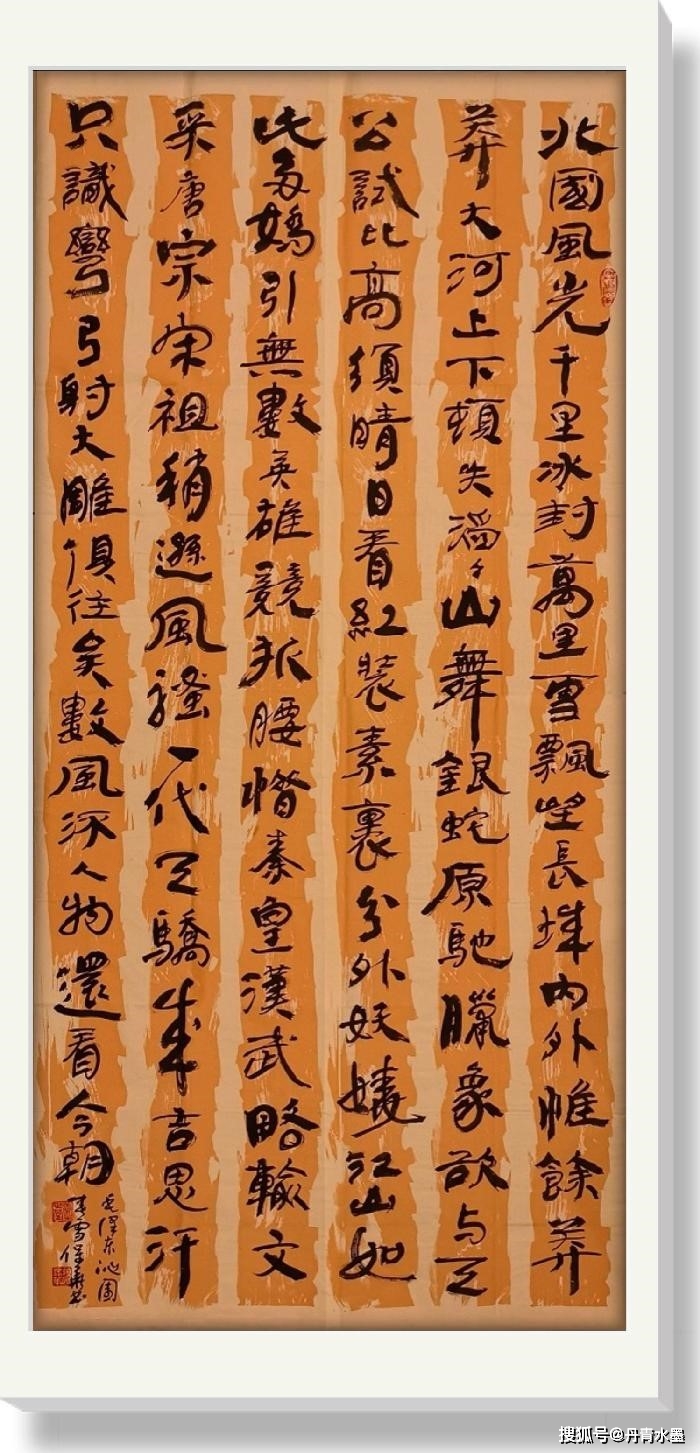 北國風光千里冰封萬里雪飄望長城内外惟餘莽
莽大河上下頓失滔々山舞銀蛇原馳臘象欲与天
公試比高須晴日看紅裝素裹分外妖嬈江山如
此多嬌引無數英雄競折腰惜秦皇漢武略輸文
采唐宗宋祖稍遜風騷一代天驕成吉思汗
只識彎弓射大雕俱往矣數風流人物還看今朝
毛澤东沁園
春雪
搜狐号@丹青水墨